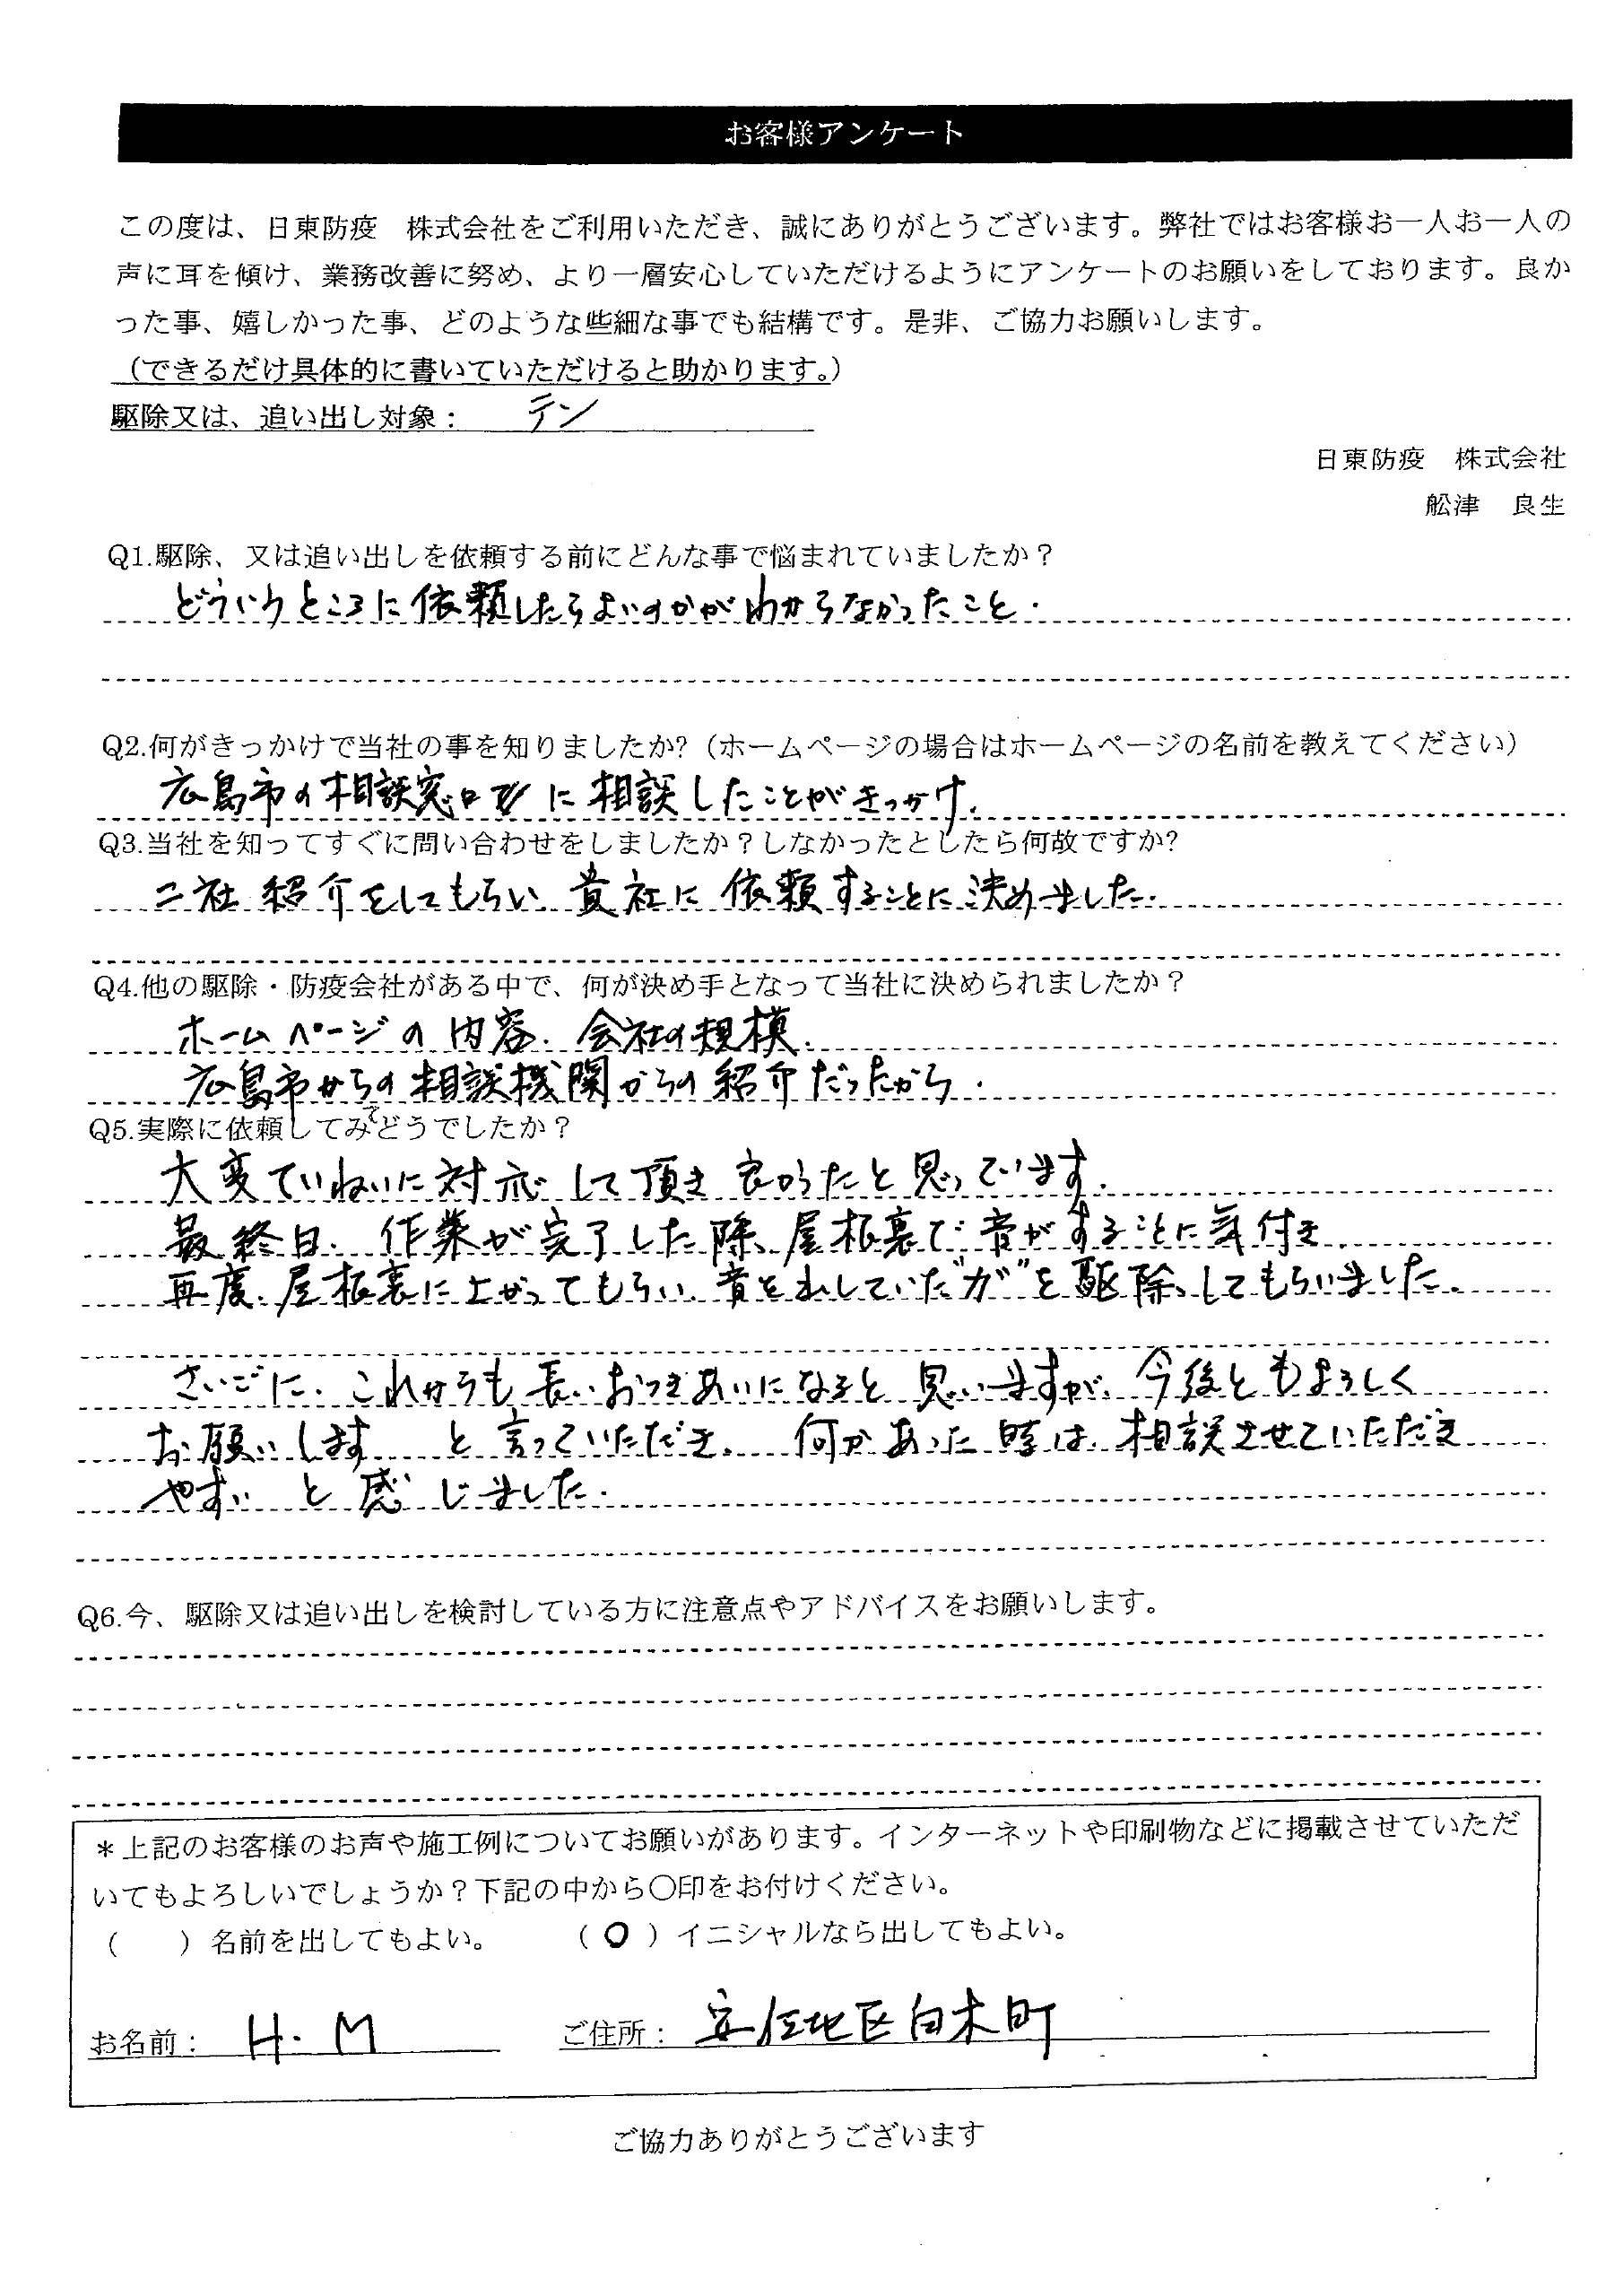 お客様アンケート
この度は、日東防疫　株式会社をご利用いただき、誠にありがとうございます。弊社ではお客様お一人お一人の
声に耳を傾け、業務改善に努め、より一層安心していただけるようにアンケートのお願いをしております。良か
った事、嬉しかった事、どのような些細な事でも結構です。是非、ご協力お願いします。
（できるだけ具体的に書いていただけると助かります。）
駆除又は、追い出し対象： テン
日東防疫　株式会社
舩津　良生
Q1.駆除、又は追い出しを依頼する前にどんな事で悩まれていましたか？
どういうところに依頼したらよいのかがわからなかったこと.
Q2.何がきっかけで当社の事を知りましたか?（ホームページの場合はホームページの名前を教えてください）
広島市の相談窓口に相談したことがきっかけ.
Q3.当社を知ってすぐに問い合わせをしましたか？しなかったとしたら何故ですか?
二社 紹介をしてもらい、貴社に依頼することに決めました.
Q4.他の駆除・防疫会社がある中で、何が決め手となって当社に決められましたか？
ホームページの内容. 会社の規模.
広島市からの相談機関からの紹介だったから.
Q5.実際に依頼してみてどうでしたか？
大変ていねいに対応して頂き良かったと思っています.
最終日. 作業が完了した際、屋根裏で音がすることに気付き
再度、屋根裏に上がってもらい、音を出していた"ガ"を駆除してもらいました.
さいごに、これからも長いおつきあいになると思いますが、今後ともよろしく
お願いします と言っていただき、何かあった時は相談させていただき
やすい と感じました.
Q6.今、駆除又は追い出しを検討している方に注意点やアドバイスをお願いします。
＊上記のお客様のお声や施工例についてお願いがあります。インターネットや印刷物などに掲載させていただ
いてもよろしいでしょうか？下記の中から〇印をお付けください。
（　　）名前を出してもよい。　（ O ）イニシャルなら出してもよい。
お名前： H. M　ご住所： 安佐北区白木町
ご協力ありがとうございます